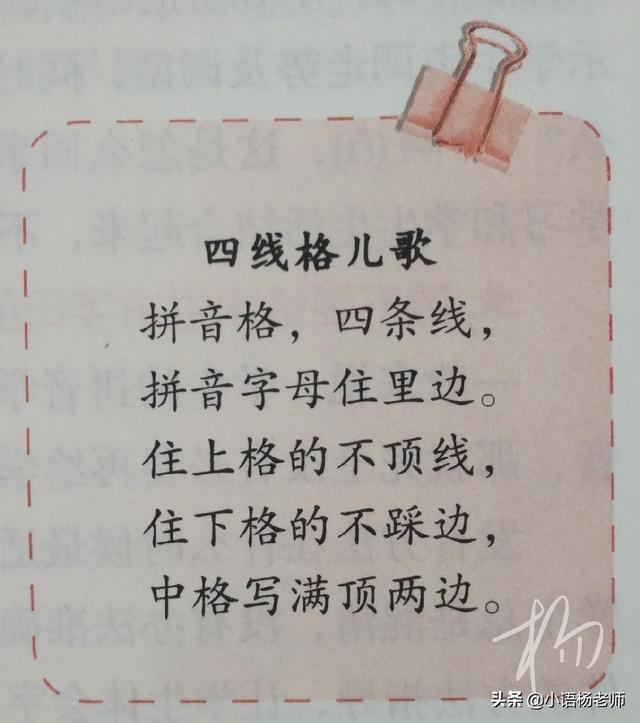 四线格儿歌
拼音格，四条线，
拼音字母住里边。
住上格的不顶线，
住下格的不踩边，
中格写满顶两边。
杨
头条 @小语杨老师